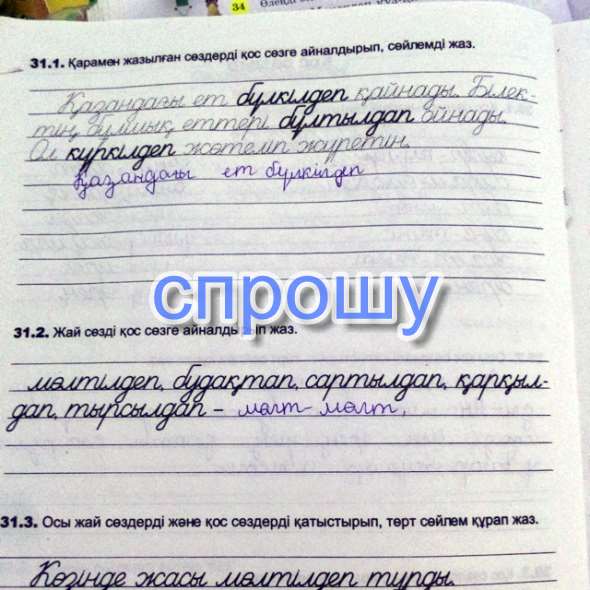 34
31.1. Қарамен жазылған сөздерді қос сөзге айналдырып, сөйлемді жаз.
Қазандағы ет бүлкілдеп қайнады. Білек-
тің бұлшық еттері бұлтылдап ойнады.
Ол күркілдеп жөтеліп жүретін.
Қазандағы ет бүлкілдеп
спрошу
31.2. Жай сөзді қос сөзге айналдырып жаз.
мөлтілдеп, будақтап, сартылдап, қарқыл-
дап, тырсылдап – мөлт-мөлт,
31.3. Осы жай сөздерді және қос сөздерді қатыстырып, төрт сөйлем құрап жаз.
Көзінде жасы мөлтілдеп тұрды.